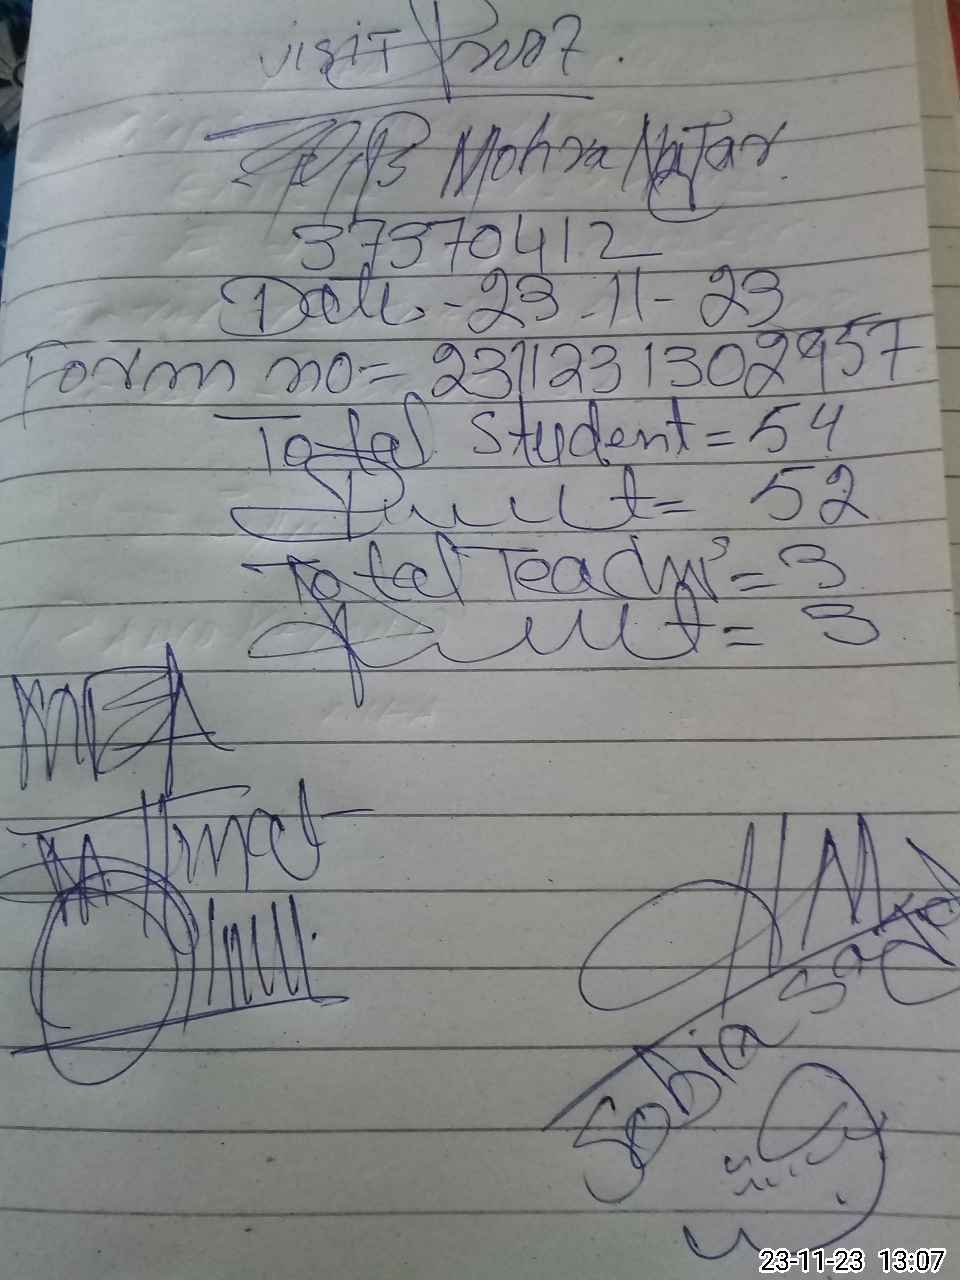 visit Proof.
Mohra Najar
37370412
Date - 23-11-23
Form no = 231123 1302957
Total Student = 54
Present = 52
Total Teachers = 3
Present = 3
MEA
HM
Sobia
23-11-23 13:07